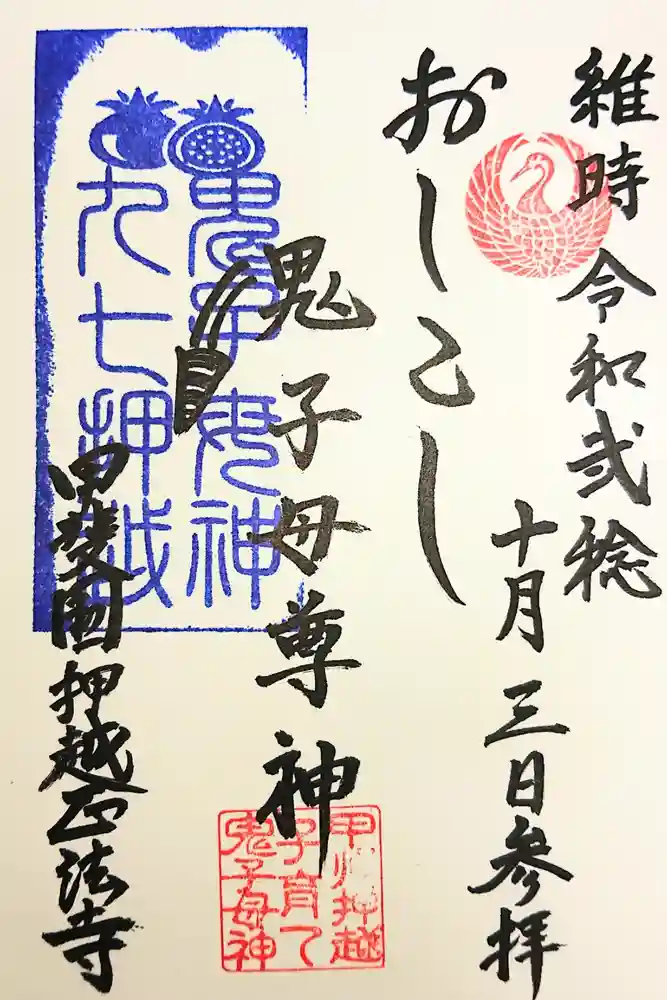 維時 令和弐稔
十月三日参拝
おしこし
鬼子母尊神
甲斐國押越正法寺
鬼子母神
九七押越
甲州押越
子育て
鬼子母神